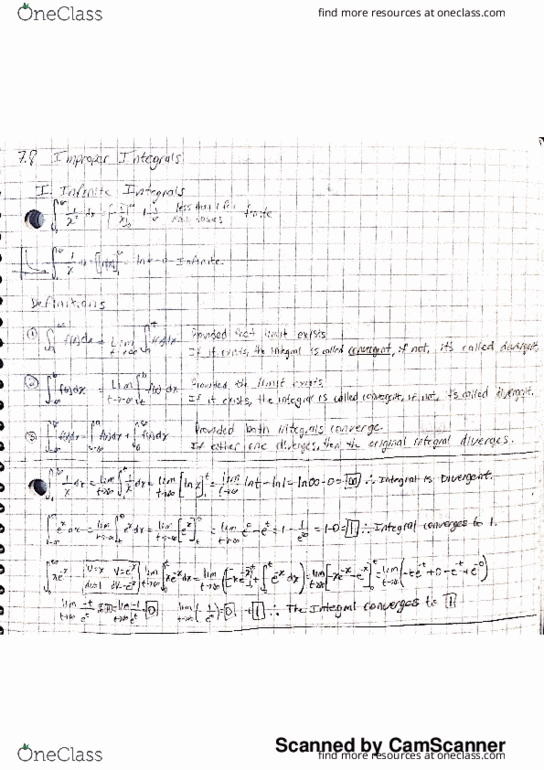 OneClass
find more resources at oneclass.com
7.8 Improper Integrals
I. Infinite Integrals
∫ 1/x² dx = finite
∫ 1/x = ln∞ - 0 = Infinite.
Definitions
① ∫ f(x)dx = Lim t→∞ ∫ f(x)dx Provided that limit exists
If it exists, the integral is called convergent, if not, it's called divergent.
② ∫ f(x)dx = Lim t→-∞ ∫ f(x) dx Provided the limit exists
If it exists, the integral is called convergent, if not, it's called divergent.
③ ∫ f(x)dx = ∫ f(x)dx + ∫ f(x)dx Provided both integrals converge.
If either one diverges, then the original integral diverges.
∫ 1/x dx = lim t→∞ ∫ 1/x dx = lim t→∞ [ln x] = lim t→∞ ln t - ln 1 = ln∞ - 0 = ∞ ∴ Integral is Divergent.
∫ eˣ dx = lim t→-∞ ∫ eˣ dx = lim t→-∞ [eˣ] = lim t→-∞ e⁰ - eᵗ = 1 - 1/e^∞ = 1-0 = 1 ∴ Integral converges to 1.
∫ xe⁻ˣ u=x du=1 lim t→∞ ∫ xe⁻ˣ dx = lim t→∞ (-xe⁻ˣ + ∫ e⁻ˣ dx) = lim t→∞ [-xe⁻ˣ - e⁻ˣ] = lim t→∞ (-te⁻ᵗ + 0 - e⁻ᵗ + e⁻⁰)
lim t→∞ -t/eᵗ = lim t→∞ -1/eᵗ = 0 lim t→∞ (-1/eᵗ) = 0 +1 ∴ The Integral converges to 1
Scanned by CamScanner
OneClass
find more resources at oneclass.com